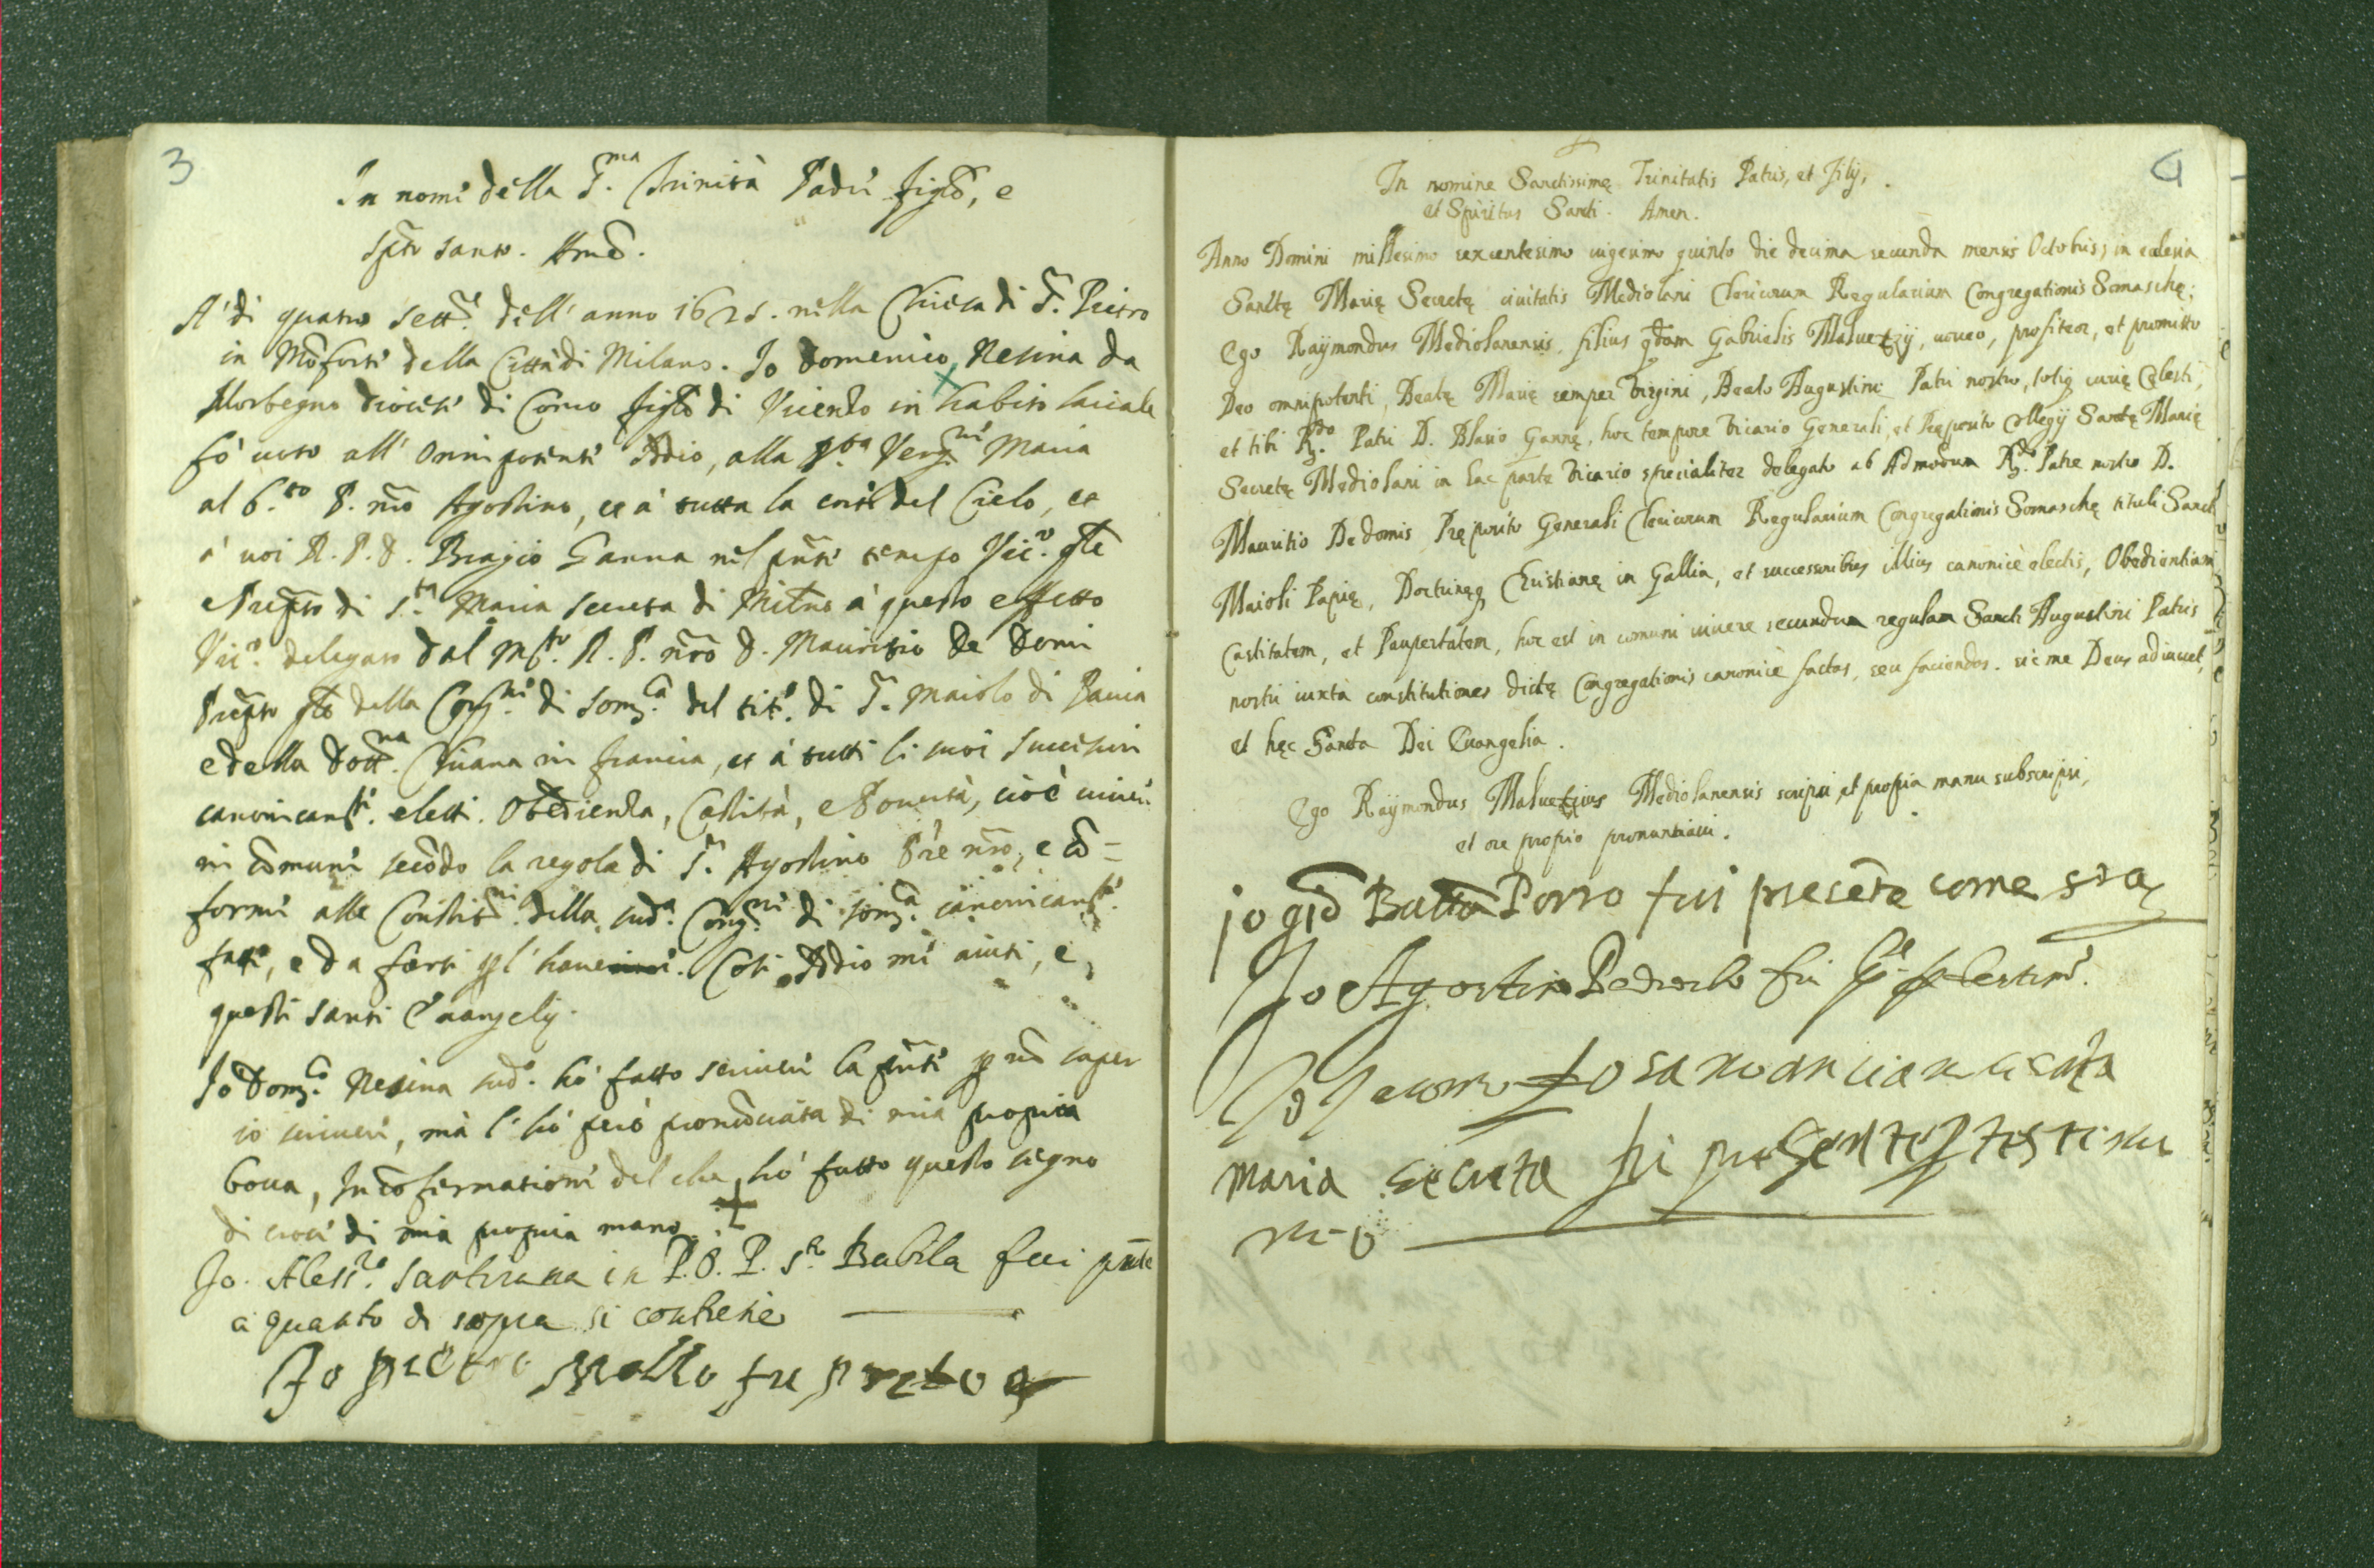 3
In nome della S.ma Trinità Padre figlo, e
Spto santo. Amē.
A' dì quatro sett.e dell' anno 1625. nella Chiesa di S. Pietro
in Mōforte della Città di Milano. Io Domenico Nesina da
Morbegno diocesi di Como figlo di Vicenzo in habito laicale
fò voto all' Omnipotente Iddio, alla B.ta Verg.ne Maria
al b.to P. nro Agostino, et à tutta la corte del Cielo, et
à voi R. P. D. Biagio Ganna nel pnte tempo Vic.o gle
e Prepto di S.ta Maria secreta di Milno à questo effetto
Vic.o delegato dal M.to R. P. nro D. Mauritio De Domi
Prepto gle della Cong.ne di Som.ca del tit.o di S. Maiolo di Pavia
e della Dott.na Chiana in francia, et à tutti li suoi successori
canonicamte. eletti. Obedienza, Castità, e Povertà, cioè vivere
in cōmune secōdo la regola di S. Agostino Pre nro, e cō=
forme alle Constitni. della sud.a Cong.ne di som.ca canonicamte.
fatte, e da farsi p l' havenire. Così Iddio mi aiuti, e
questi santi Evangelij.
Io Dom.co Nesina sud.o hò fatto scrivere la pnte p nō saper
io scrivere, mà l' hò però pronūciata di mia propria
bocca, In cōfermatione del che hò fatto questo segno
di croce di mia propria mano. +
Io. Aless.ro Santirana in P. O. P. S.to Babila fui pnte
a quanto di sopra si contiene
Io pietro
4
In nomine Sanctissimę Trinitatis Patris, et Filij,
et Spiritus Sancti. Amen.
Anno Domini millesimo sexcentesimo vigesimo quinto die decima secunda mensis Octobris, in ecclesia
Sanctę Marię Secretę civitatis Mediolani Clericorum Regularium Congregationis Somaschę;
Ego Raÿmondus Mediolanensis, filius qdam Gabrielis Maluetzij, voveo, profiteor, et promitto
Deo omnipotenti, Beatę Marię semper Virgini, Beato Augustino Patri nostro, totiq curię Cęlesti,
et tibi R.do Patri D. Blasio Gannę, hoc tempore Vicario Generali, et Pręposito Collegij Sanctę Marię
Secretę Mediolani in hac parte Vicario specialiter delegato ab Admodum R.do Patre nostro D.
Mauritio De domis Pręposito Generali Clericorum Regularium Congregationis Somaschę tituli Sancti
Maioli Papię, Doctrinęq Christianę in Gallia, et successoribus illius canonicè electis, Obedientiam
Castitatem, et Paupertatem, hoc est in comuni vivere secundum regulam Sancti Augustini Patris
nostri iuxta constitutiones dictę Congregationis canonicè factas, seu faciendas. sic me Deus adiuvet,
et hęc Sancta Dei Evangelia.
Ego Raÿmondus Maluetzius Mediolanensis scripsi, et propia manu subscripsi,
et ore propio pronuntiavi.
io giō Battā Porro fui presēte come sra
Io Agostino Pedroclo fui p testimo.
Io Jacomo
Maria secreta fui presente p testimo